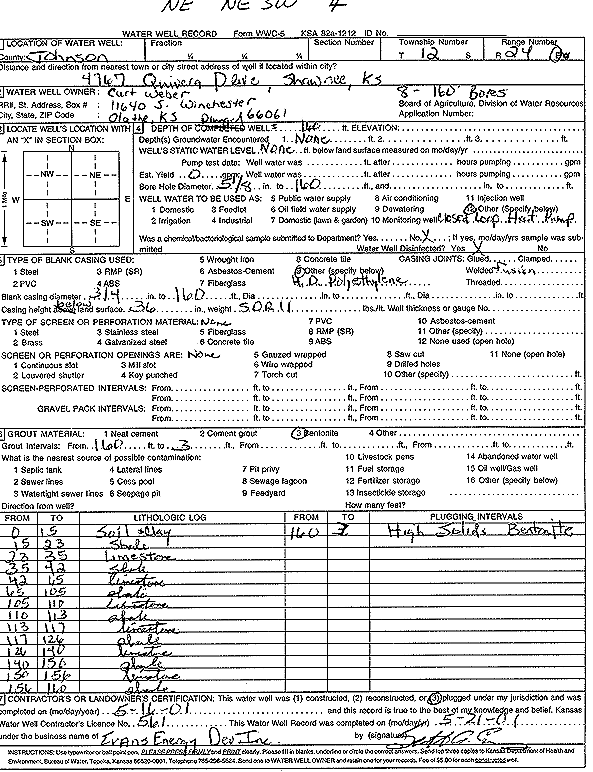 NE NE SW 4
WATER WELL RECORD Form WWC-5 KSA 82a-1212 ID No.
1 LOCATION OF WATER WELL: Fraction Section Number Township Number Range Number
County: Johnson ¼ ¼ ¼ T 12 S R 24
Distance and direction from nearest town or city street address of well if located within city?
4767 Quivera Drive, Shawnee, KS
2 WATER WELL OWNER: Curt Weber 8 - 160' Bores
RR#, St. Address, Box #: 11640 S. Winchester Board of Agriculture, Division of Water Resources
City, State, ZIP Code Olathe, KS 66061 Application Number:
3 LOCATE WELL'S LOCATION WITH 4 DEPTH OF COMPLETED WELL 160 ft. ELEVATION:
AN "X" IN SECTION BOX: Depth(s) Groundwater Encountered 1. None ft. 2. ft. 3. ft.
WELL'S STATIC WATER LEVEL None ft. below land surface measured on mo/day/yr
Pump test data: Well water was ft. after hours pumping gpm
Est. Yield 0 gpm; Well water was ft. after hours pumping gpm
Bore Hole Diameter 5 1/8 in. to 160 ft., and in. to ft.
WELL WATER TO BE USED AS: 5 Public water supply 8 Air conditioning 11 Injection well
1 Domestic 3 Feedlot 6 Oil field water supply 9 Dewatering 12 Other (Specify below)
2 Irrigation 4 Industrial 7 Domestic (lawn & garden) 10 Monitoring well Closed Loop Heat Pump
Was a chemical/bacteriological sample submitted to Department? Yes No X; If yes, mo/day/yrs sample was submitted
Water Well Disinfected? Yes X No
N
NW NE
W E
SW SE
S
1 Mile
5 TYPE OF BLANK CASING USED: 5 Wrought Iron 8 Concrete tile CASING JOINTS: Glued Clamped
1 Steel 3 RMP (SR) 6 Asbestos-Cement 9 Other (specify below) Welded fusion
2 PVC 4 ABS 7 Fiberglass H.D. Polyethylene Threaded
Blank casing diameter 3/4 in. to 160 ft., Dia in. to ft., Dia in. to ft.
Casing height below land surface 36 in., weight SDR 11 lbs./ft. Wall thickness or gauge No.
TYPE OF SCREEN OR PERFORATION MATERIAL: None 7 PVC 10 Asbestos-cement
1 Steel 3 Stainless steel 5 Fiberglass 8 RMP (SR) 11 Other (specify)
2 Brass 4 Galvanized steel 6 Concrete tile 9 ABS 12 None used (open hole)
SCREEN OR PERFORATION OPENINGS ARE: None 5 Gauzed wrapped 8 Saw cut 11 None (open hole)
1 Continuous slot 3 Mill slot 6 Wire wrapped 9 Drilled holes
2 Louvered shutter 4 Key punched 7 Torch cut 10 Other (specify) ft.
SCREEN-PERFORATED INTERVALS: From ft. to ft., From ft. to ft.
From ft. to ft., From ft. to ft.
GRAVEL PACK INTERVALS: From ft. to ft., From ft. to ft.
From ft. to ft., From ft. to ft.
6 GROUT MATERIAL: 1 Neat cement 2 Cement grout 3 Bentonite 4 Other
Grout Intervals: From 160 ft. to 3 ft., From ft. to ft., From ft. to ft.
What is the nearest source of possible contamination: 10 Livestock pens 14 Abandoned water well
1 Septic tank 4 Lateral lines 7 Pit privy 11 Fuel storage 15 Oil well/Gas well
2 Sewer lines 5 Cess pool 8 Sewage lagoon 12 Fertilizer storage 16 Other (specify below)
3 Watertight sewer lines 6 Seepage pit 9 Feedyard 13 Insecticide storage
Direction from well? How many feet?
FROM TO LITHOLOGIC LOG FROM TO PLUGGING INTERVALS
0 15 Soil & Clay 160 3 High Solids Bentonite
15 23 Shale
23 35 limestone
35 42 shale
42 65 limestone
65 105 shale
105 110 limestone
110 113 shale
113 117 limestone
117 126 shale
126 140 limestone
140 150 shale
150 156 limestone
156 160 shale
7 CONTRACTOR'S OR LANDOWNER'S CERTIFICATION: This water well was (1) constructed, (2) reconstructed, or (3) plugged under my jurisdiction and was
completed on (mo/day/year) 5-16-01 and this record is true to the best of my knowledge and belief. Kansas
Water Well Contractor's Licence No. 561 This Water Well Record was completed on (mo/day/yr) 5-21-01
under the business name of Evans Energy Dev Inc by (signature)
INSTRUCTIONS: Use typewriter or ball point pen. PLEASE PRESS FIRMLY and PRINT clearly. Please fill in blanks, underline or circle the correct answers. Send top three copies to Kansas Department of Health and
Environment, Bureau of Water, Topeka, Kansas 66620-0001. Telephone 785-296-5524. Send one to WATER WELL OWNER and retain one for your records. Fee of $5.00 for each constructed well.